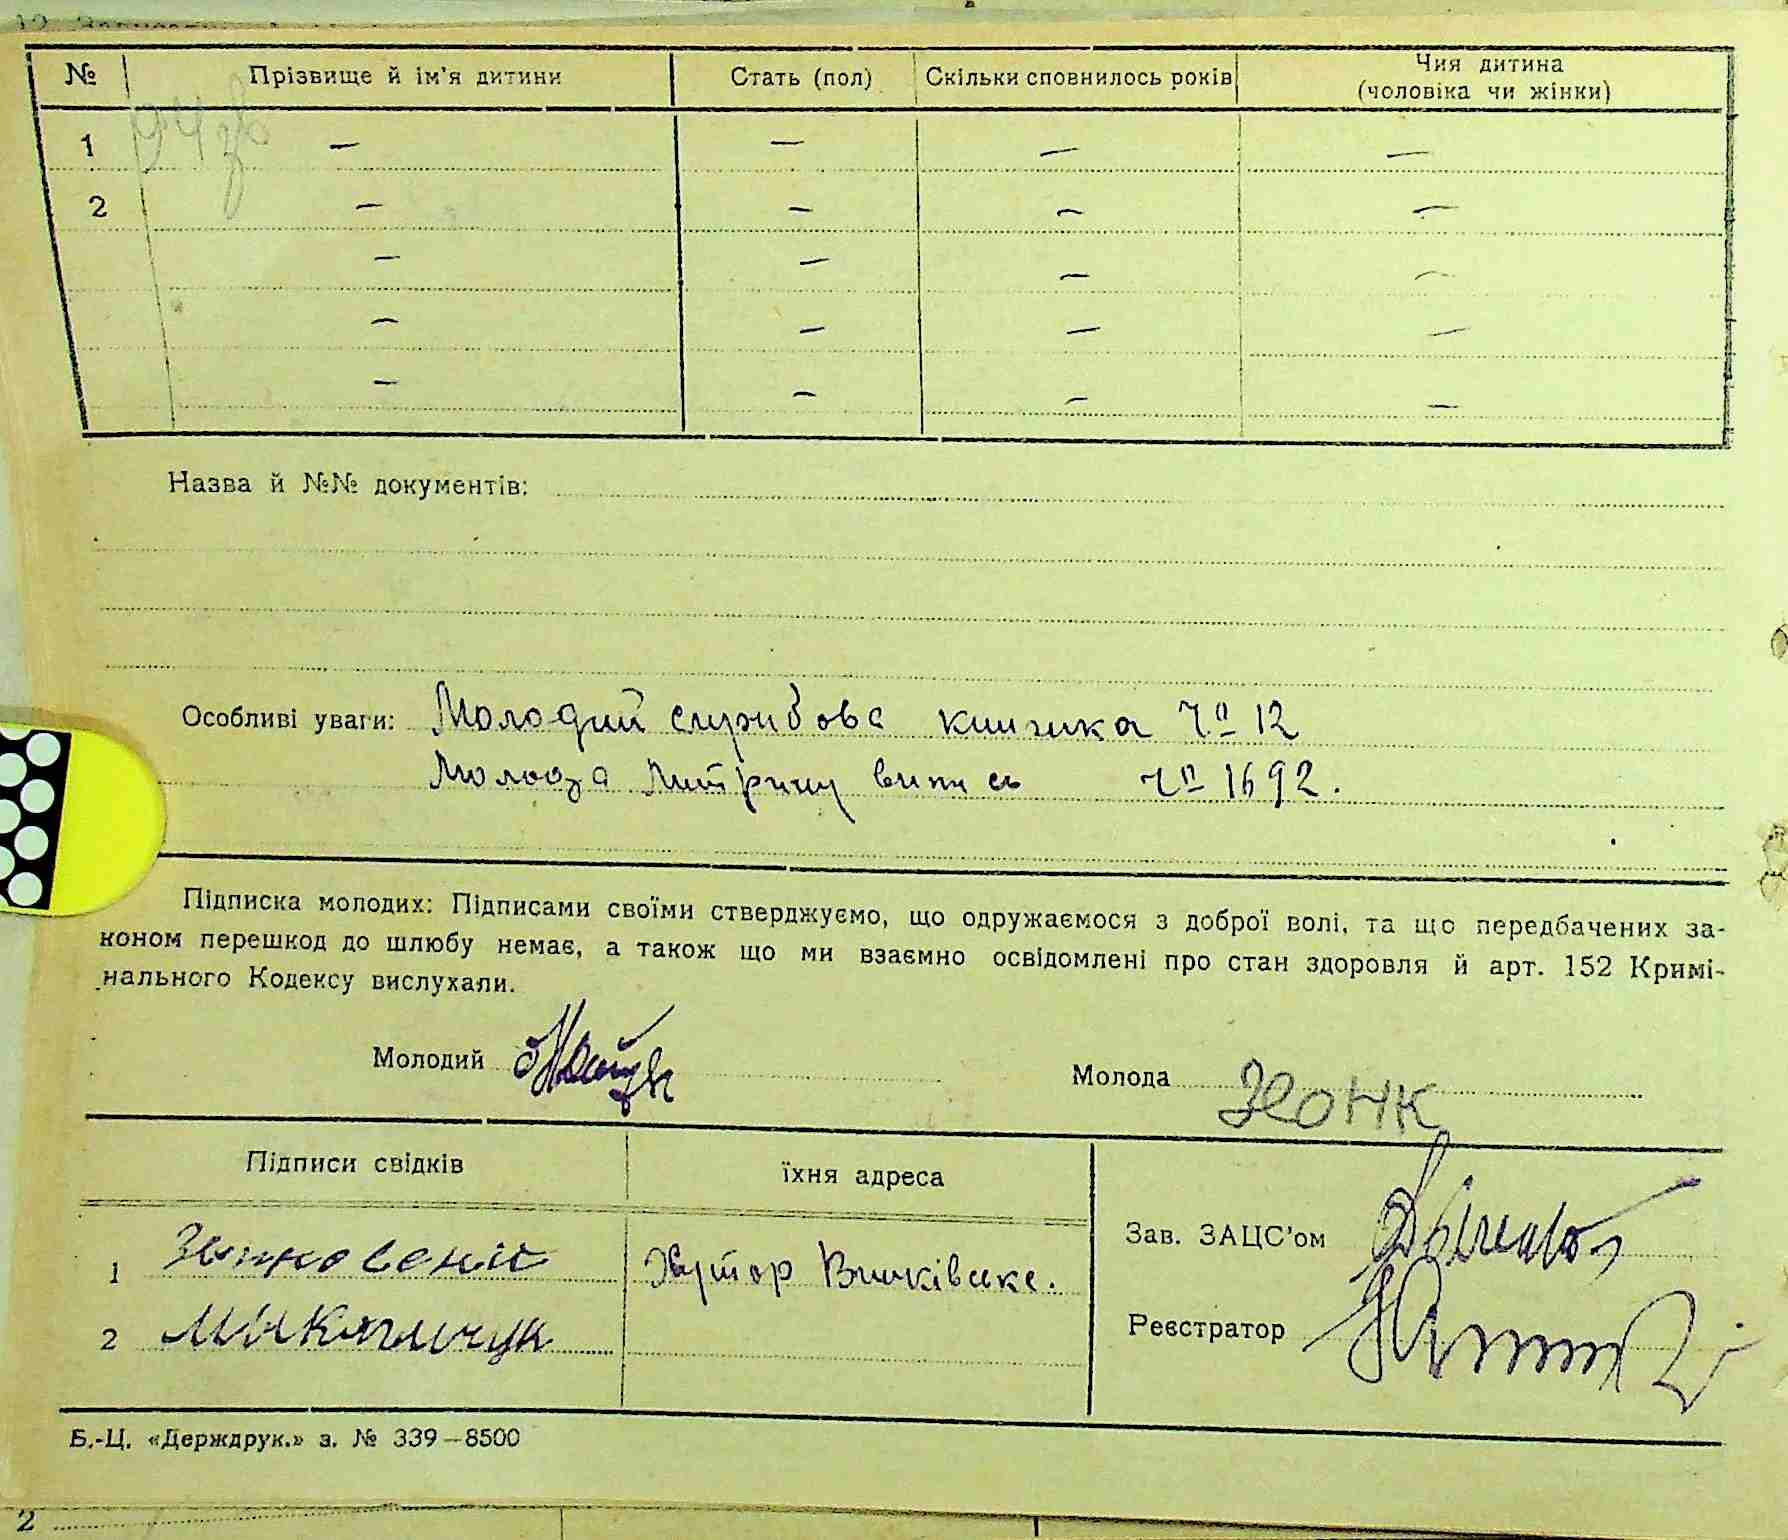 № Прізвище й ім'я дитини Стать (пол) Скільки сповнилось років Чия дитина (чоловіка чи жінки)
1 — — — —
2 — — — —
— — — —
— — — —
— — — —
Назва й №№ документів:
Особливі уваги: Молодий службова книжка Чº 12
Молода Митричну випись чº 1692.
Підписка молодих: Підписами своїми стверджуємо, що одружаємося з доброї волі, та що передбачених за-
коном перешкод до шлюбу немає, а також що ми взаємно освідомлені про стан здоровля й арт. 152 Кримі-
нального Кодексу вислухали.
Молодий Молода
Підписи свідків їхня адреса
Зав. ЗАЦС'ом
1 Хутор
Реєстратор
2
Б.-Ц. «Держдрук.» з. № 339—8500
2